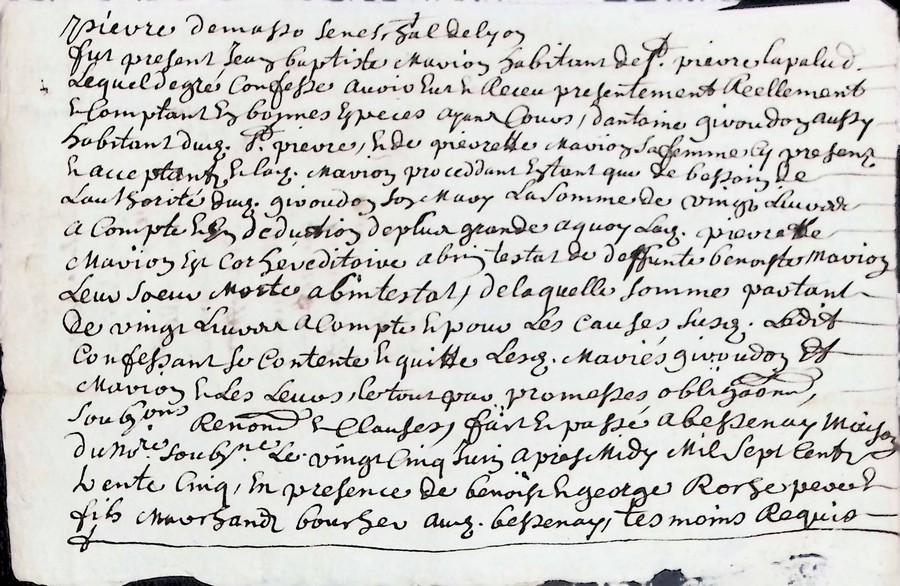 pierre demasso seneschal de lyon
fut present Jean baptiste Marion habitant de St. pierre lapalud.
Lequel de gré Confesse avoir Eut & Receu presentement Reellement
& Comptant En bonnes Especes ayant Cours, dantoine giroudon aussy
habitant dud. St. pierre, & de pierrette Marion sa femme Cy present.
& acceptant, & lad. Marion proceddant Estant que de besoin de
Lauthorité dud. giroudon son Mary La somme de vingt Livres
a Compte & En deduction de plus grande a quoy Lad. pierrette
Marion Est Cor hereditaire abintestat de deffunte benoiste Marion
Leur soeur Morte abintestat, de laquelle somme partant
De vingt Livres a Compte & pour Les Causes susd. Ledit
Confessant se Contente & quitte Lesd. Mariés giroudon Et
Marion & Les Leurs le tout par promesses obligaõns,
soub̃ons Renonõns & Clauses, fait & passé a bessenay Maison
du Nore. soub̃ne Le vingt Cinq Juin apres Midy Mil sept Cent
trente Cinq, En presence de benoist & george Roche pere &
fils Marchandz boucher aud. bessenay, tesmoins Requis